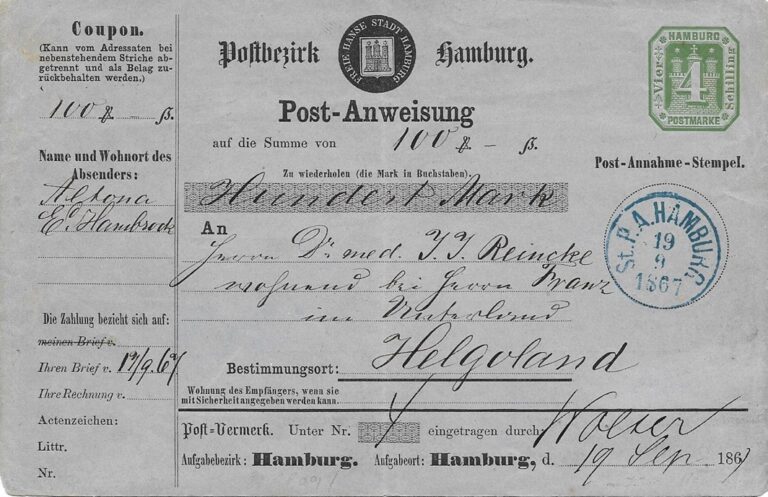 Coupon.
(Kann vom Adressaten bei
nebenstehendem Striche ab-
getrennt und als Belag zu-
rückbehalten werden.)
100 ₰ — ß.
Name und Wohnort des
Absenders:
Altona
E. Hambrock
Die Zahlung bezieht sich auf:
meinen Brief v.
Ihren Brief v. 19/9. 67
Ihre Rechnung v.
Actenzeichen:
Littr.
Nr.
Postbezirk Hamburg.
FREIE HANSE STADT HAMBURG
HAMBURG
Vier 4 Schilling
POSTMARKE
Post-Anweisung
auf die Summe von 100 ₰ — ß.
Post-Annahme-Stempel.
Zu wiederholen (die Mark in Buchstaben).
Hundert Mark
An
Herrn Dr. med. J. J. Reincke
wohnend bei Herrn Franz
im Unterland
St. P. A. HAMBURG
19
9
1867
Bestimmungsort: Helgoland
Wohnung des Empfängers, wenn sie
mit Sicherheit angegeben werden kann.
Post-Vermerk. Unter Nr. eingetragen durch:
Aufgabebezirk: Hamburg. Aufgabeort: Hamburg, d. 19 Sep 1867